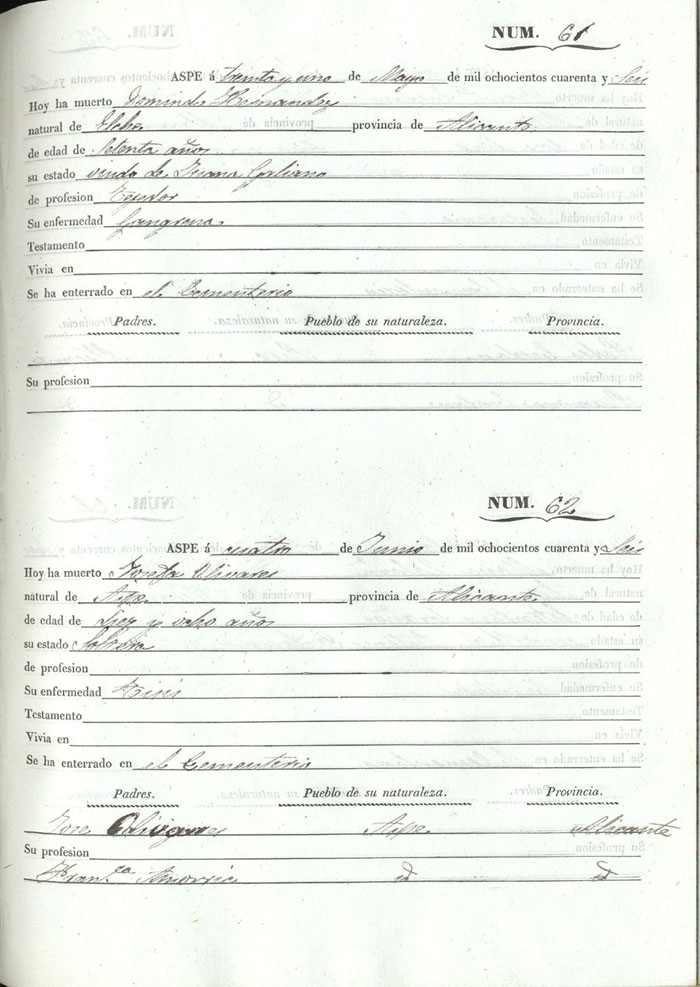 NUM. 61
ASPE á treinta y uno de Mayo de mil ochocientos cuarenta y Seis
Hoy ha muerto Domindo Hernandez
natural de Elche provincia de Alicante
de edad de Setenta años
su estado viudo de Juana Galiano
de profesion Tejedor
Su enfermedad gangrena
Testamento
Vivia en
Se ha enterrado en el Cementerio
Padres. Pueblo de su naturaleza. Provincia.
Su profesion
NUM. 62
ASPE á cuatro de Junio de mil ochocientos cuarenta y Seis
Hoy ha muerto Josefa Olivares
natural de Aspe provincia de Alicante
de edad de diez y ocho años
su estado Soltera
de profesion
Su enfermedad Tisis
Testamento
Vivia en
Se ha enterrado en el Cementerio
Padres. Pueblo de su naturaleza. Provincia.
Jose Olivares Aspe Alicante
Su profesion
Fran.ca id id